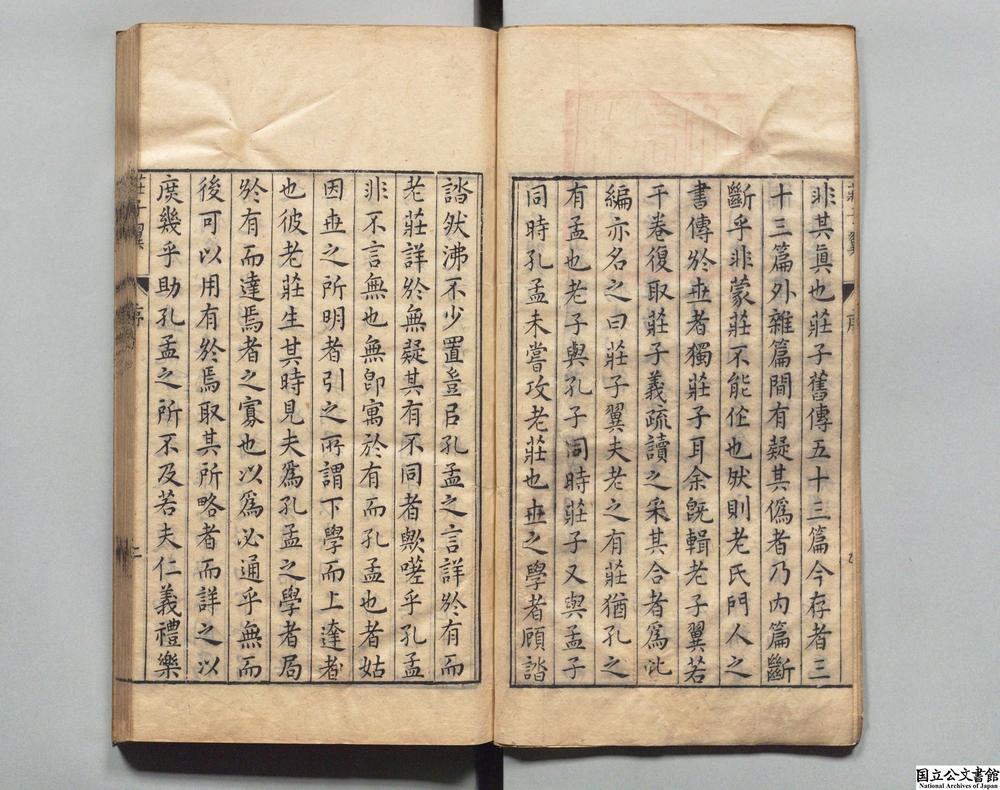 非其眞也莊子舊傳五十三篇今存者三
十三篇外雜篇間有疑其僞者乃內篇斷
斷乎非蒙莊不能作也然則老氏門人之
書傳於世者獨莊子耳余旣輯老子翼若
干卷復取莊子義疏讀之采其合者爲此
編亦名之曰莊子翼夫老之有莊猶孔之
有孟也老子與孔子同時莊子又與孟子
同時孔孟未嘗攻老莊也世之學者顧諮
諮然沸不少置豈㠯孔孟之言詳於有而
老莊詳於無疑其有不同者歟嗟乎孔孟
非不言無也無卽寓於有而孔孟也者姑
因世之所明者引之所謂下學而上達者
也彼老莊生其時見夫爲孔孟之學者局
於有而達焉者之寡也以爲必通乎無而
後可以用有於焉取其所略者而詳之以
庶幾乎助孔孟之所不及若夫仁義禮樂
莊子翼
序
二
国立公文書館
National Archives of Japan